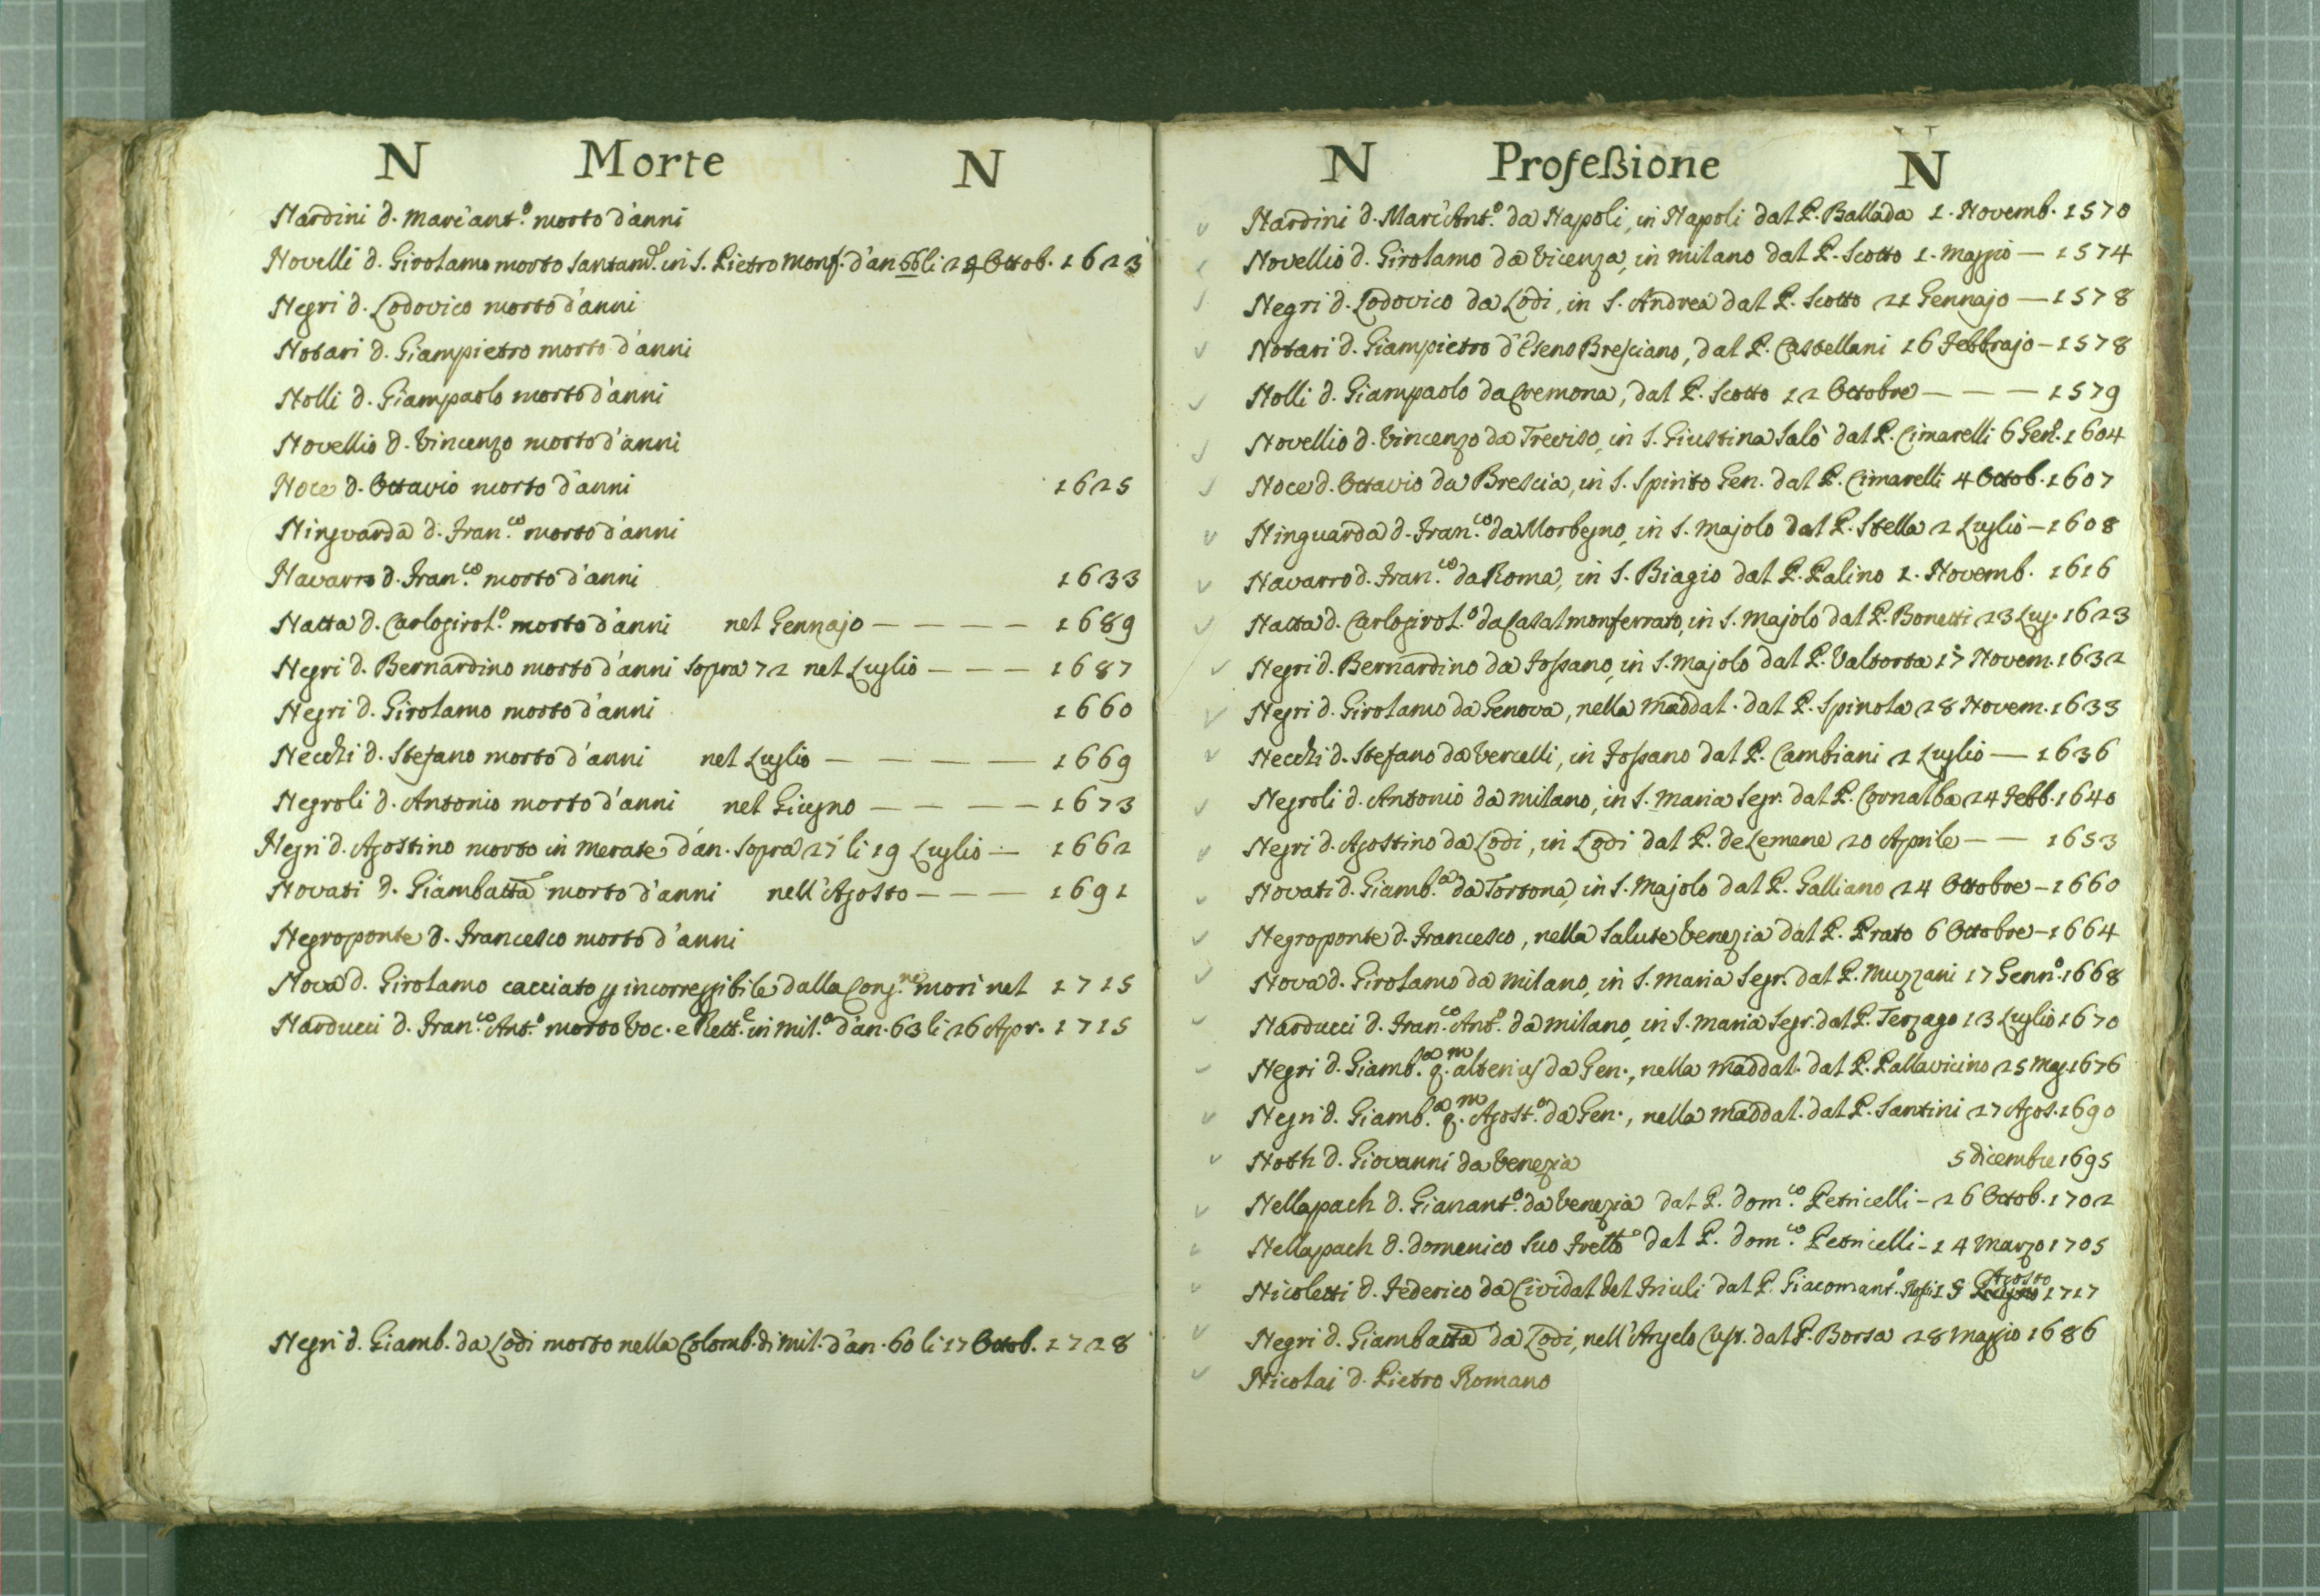 N Morte N
Nardini d. Marc'ant.º morto d'anni
Novelli d. Girolamo morto santam.e in S. Pietro Monf. d'an 66 li 24 Ottob. 1623
Negri d. Lodovico morto d'anni
Notari d. Giampietro morto d'anni
Nolli d. Giampaolo morto d'anni
Novellio d. Vincenzo morto d'anni
Noce d. Ottavio morto d'anni 1625
Ninguarda d. Fran.co morto d'anni
Navarro d. Fran.co morto d'anni 1633
Natta d. Carlogirol.º morto d'anni nel Gennajo — — — — 1689
Negri d. Bernardino morto d'anni sopra 72 nel Luglio — — — 1687
Negri d. Girolamo morto d'anni 1660
Necchi d. Stefano morto d'anni nel Luglio — — — — 1669
Negroli d. Antonio morto d'anni nel Giugno — — — — 1673
Negri d. Agostino morto in Merate d'an. sopra 27 li 19 Luglio — 1662
Novati d. Giambatta morto d'anni nell'Agosto — — — 1691
Negroponte d. Francesco morto d'anni
Nova d. Girolamo cacciato p incorreggibile dalla Cong.ne morì nel 1715
Narducci d. Fran.co Ant.º morto Voc. e Rett.e in Mil.º d'an. 63 li 26 Apr. 1715
Negri d. Giamb. da Lodi morto nella Colomb. di Mil. d'an. 60 li 17 Ottob. 1728
N Profeßione N
Nardini d. Marc'Ant.º da Napoli, in Napoli dal P. Ballada 1. Novemb. 1570
Novellio d. Girolamo da Vicenza, in Milano dal P. Scotto 1. Maggio — 1574
Negri d. Lodovico da Lodi, in S. Andrea dal P. Scotto 21 Gennajo — 1578
Notari d. Giampietro d'Eseno Bresciano, dal P. Castellani 16 Febbrajo — 1578
Nolli d. Giampaolo da Cremona, dal P. Scotto 12 Ottobre — — — 1579
Novellio d. Vincenzo da Treviso, in S. Giustina Salò dal P. Cimarelli 6 Gen.º 1604
Noce d. Ottavio da Brescia, in S. Spirito Gen. dal P. Cimarelli 4 Ottob. 1607
Ninguarda d. Fran.co da Morbegno, in S. Majolo dal P. Stella 2 Luglio — 1608
Navarro d. Fran.co da Roma, in S. Biagio dal P. Palino 1. Novemb. 1616
Natta d. Carlogirol.º da Casalmonferrato, in S. Majolo dal P. Bonetti 23 Lug. 1623
Negri d. Bernardino da Fossano, in S. Majolo dal P. Valtorta 17 Novem. 1632
Negri d. Girolamo da Genova, nella Maddal. dal P. Spinola 28 Novem. 1633
Necchi d. Stefano da Vercelli, in Fossano dal P. Cambiani 2 Luglio — 1636
Negroli d. Antonio da Milano, in S. Maria Segr. dal P. Cornalba 24 Febb. 1640
Negri d. Agostino da Lodi, in Lodi dal P. de Lemene 20 Aprile — — 1653
Novati d. Giamb.a da Tortona, in S. Majolo dal P. Galliano 24 Ottobre — 1660
Negroponte d. Francesco, nella Salute Venezia dal P. Prato 6 Ottobre — 1664
Nova d. Girolamo da Milano, in S. Maria Segr. dal P. Muzzani 17 Genn.º 1668
Narducci d. Fran.co Ant.º da Milano, in S. Maria Segr. dal P. Terzago 13 Luglio 1670
Negri d. Giamb.a q.m alterius da Gen., nella Maddal. dal P. Pallavicino 25 Mag. 1676
Negri d. Giamb.a q.m Agost.º da Gen., nella Maddal. dal P. Santini 27 Agos. 1690
Noth d. Giovanni da Venezia 5 dicembre 1695
Nellapach d. Gianant.º da Venezia dal P. Dom.co Petricelli — 26 Ottob. 1702
Nellapach d. Domenico suo Frello dal P. Dom.co Petricelli — 14 Marzo 1705
Nicoletti d. Federico da Cividal del Friuli dal P. Giacomant.º 15 Agosto 1717
Negri d. Giambatta da Lodi, nell'Angelo Cust. dal P. Borsa 28 Maggio 1686
Nicolai d. Pietro Romano